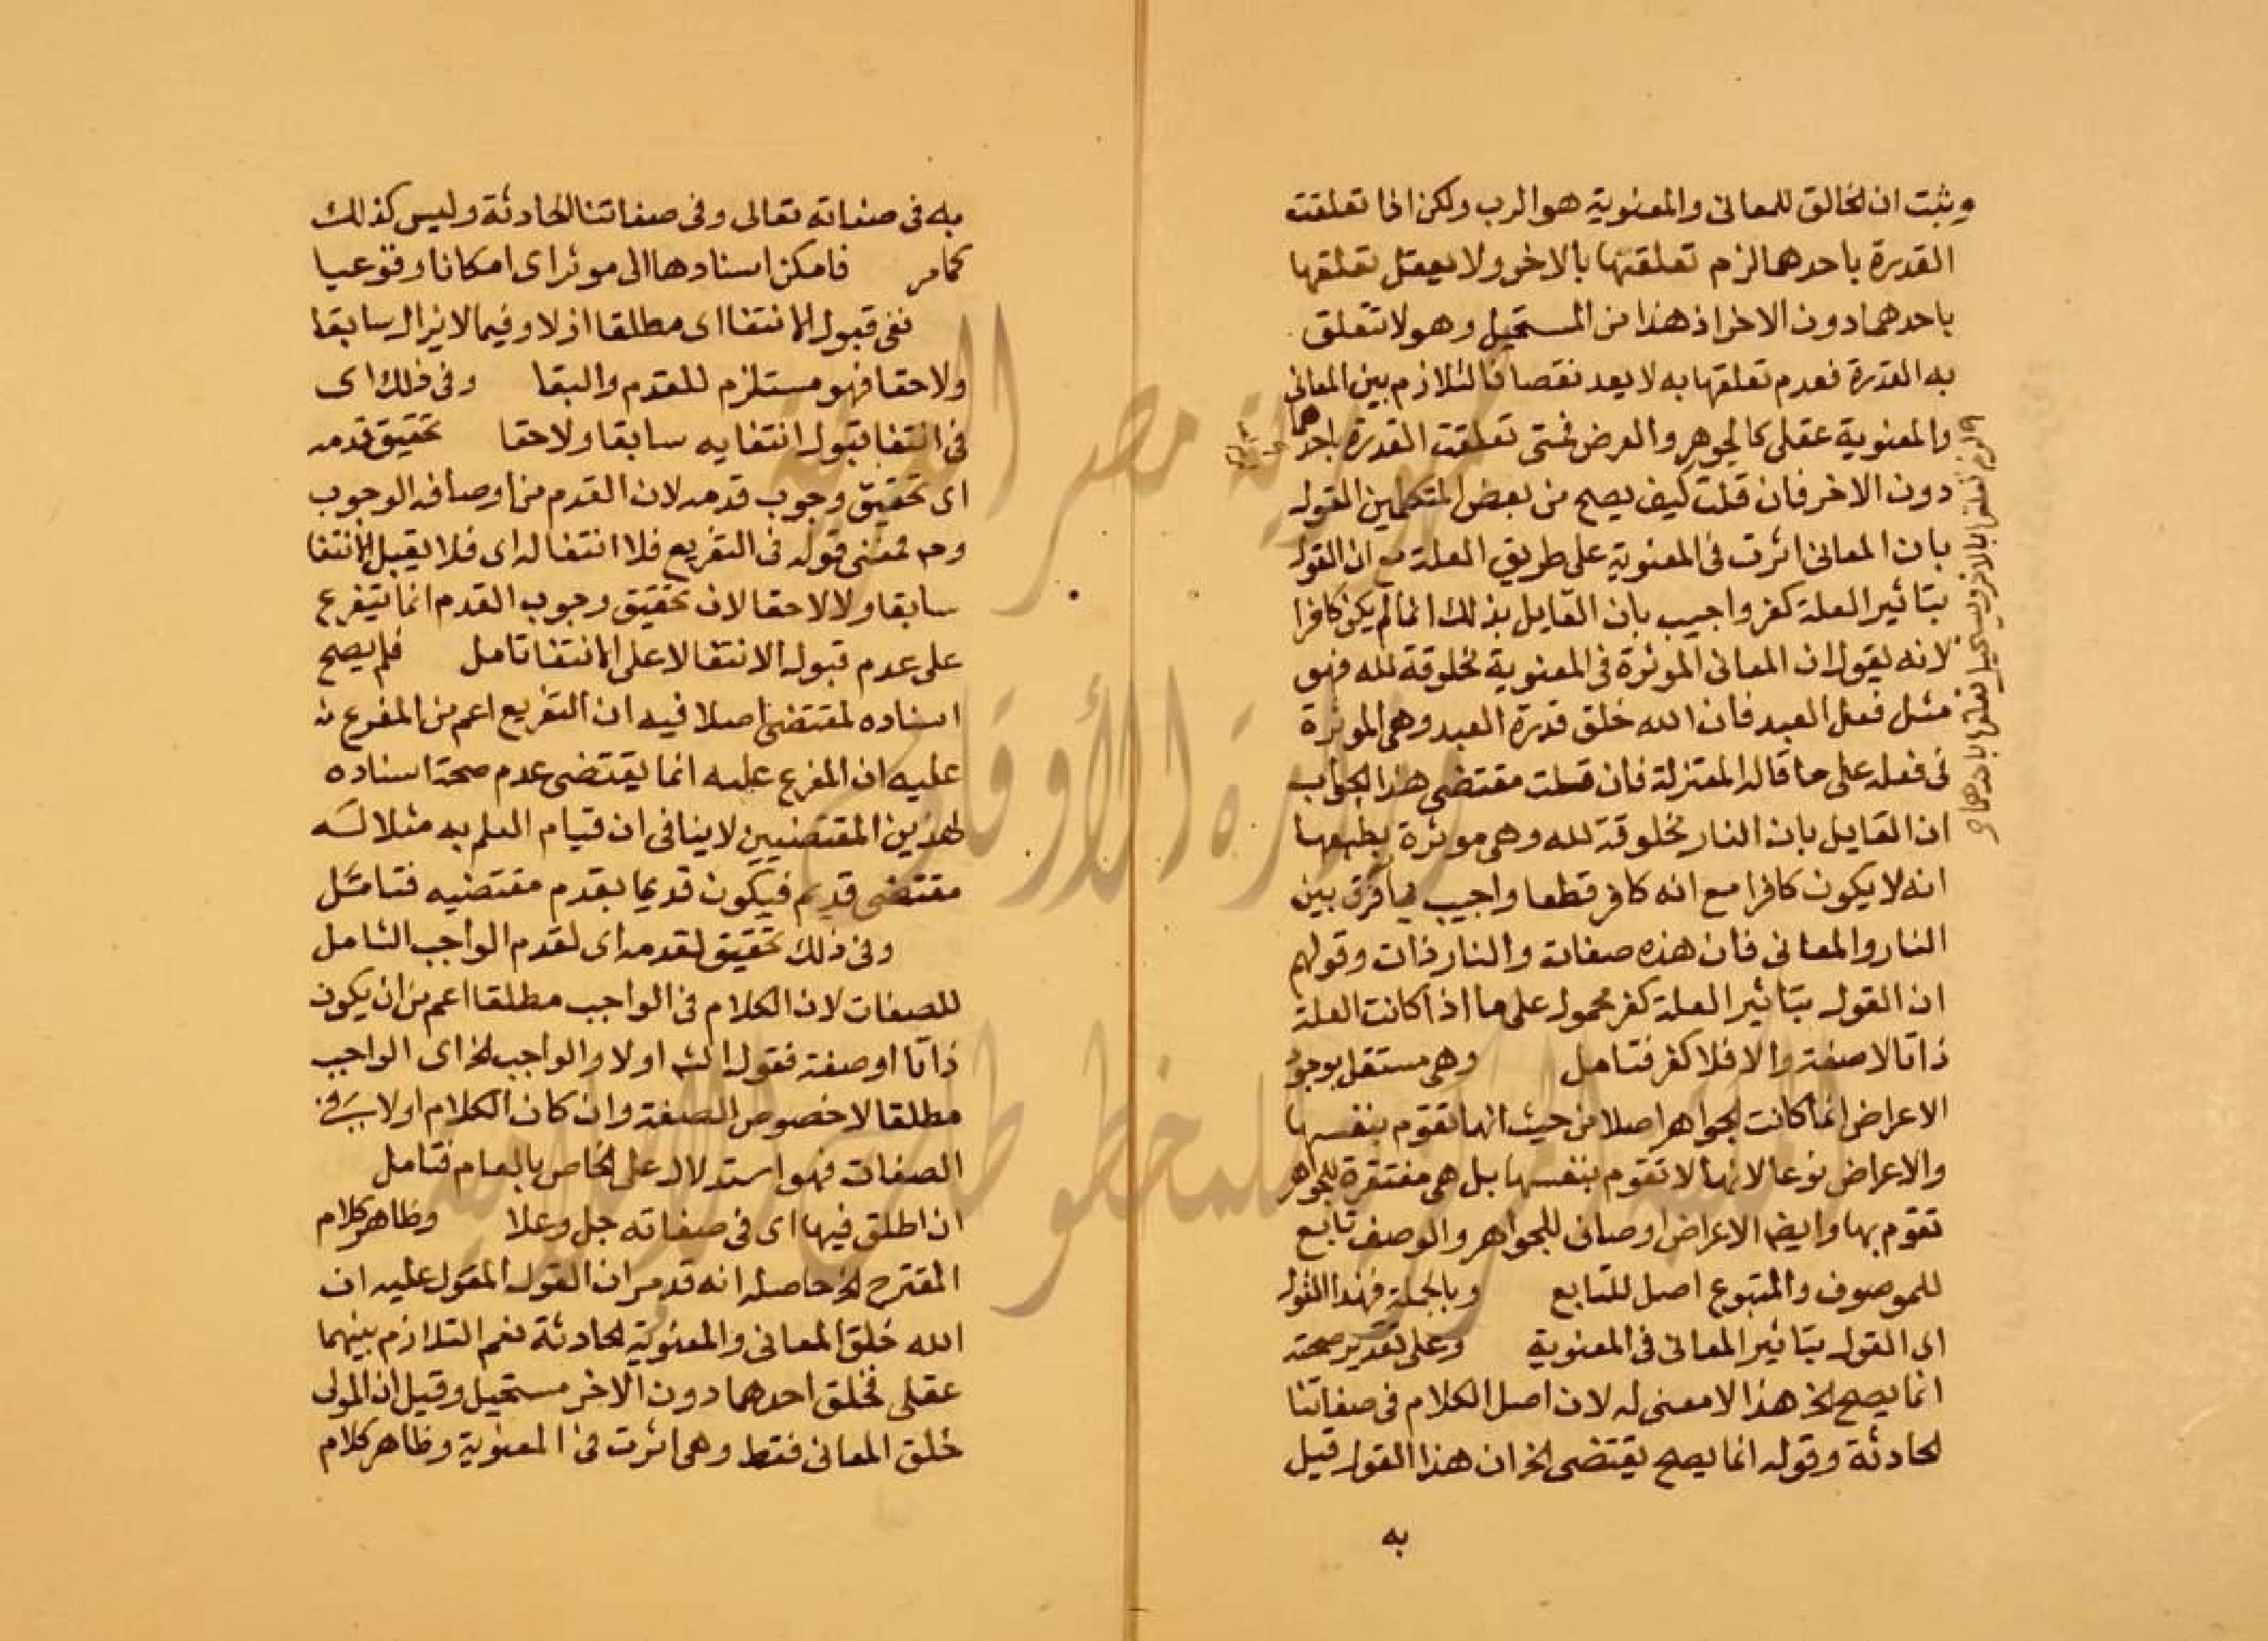 ويثبت ان الخالق للمعانى والمعنوية هو الرب ولكن اذا تعلقت
القدرة باحدهما لزم تعلقها بالاخر ولا يعقل تعلقها
باحدهما دون الاخر اذ هذا من المستحيل وهو لا تتعلق
به القدرة فعدم تعلقها به لا يعد نقصا فالتلازم بين المعانى
والمعنوية عقلى كالجوهر والعرض فمتى تعلقت القدرة باحدهما
لزم تعلقها بالاخر ويستحيل تعلقها باحدهما
دون الاخر فان قلت كيف يصح من بعض المتكلمين القول
بان المعانى اثرت فى المعنوية على طريق العلة مع ان القول
بتاثير العلة كفر واجيب بان القايل بذلك انما لم يكن كافرا
لانه يقول ان المعانى الموثرة فى المعنوية مخلوقة لله فهو
مثل فعل العبد فان الله خلق قدرة العبد وهى الموثرة
فى فعله على ما قاله المعتزلة فان قلت مقتضى هذا الجواب
ان القايل بان النار مخلوقة لله وهى موثرة بطبعها
انه لا يكون كافرا مع انه كافر قطعا واجيب بالفرق بين
النار والمعانى فان هذه صفات والنار ذات وقولهم
ان القول بتاثير العلة كفر محمول على ما اذا كانت العلة
ذاتا لا صفة والا فلا كفر فتامل وهى مستقل بوجود
الاعراض انما كانت الجواهر اصلا من حيث انها تقوم بنفسها
والاعراض نوعا لانها لا تقوم بنفسها بل هى مفتقرة للجواهر
تقوم بها وايضا الاعراض اوصاف للجواهر والوصف تابع
للموصوف والمتبوع اصل للتابع وبالجملة فهذا القول
اى القول بتاثير المعانى فى المعنوية وعلى تقدير صحته
انما يصح الخ هذا لا معنى له لان اصل الكلام فى صفاتنا
الحادثة وقوله انما يصح يقتضى الخ ان هذا القول قيل
به
به فى صفاته تعالى وفى صفاتنا الحادثة وليس كذلك
كما مر فامكن اسنادها الى موثر اى امكانا وقوعيا
نفى قبول الانتفا اى مطلقا ازلا وفيما لا يزال سابقا
ولاحقا فهو مستلزم للقدم والبقا وفى ذلك اى
فى انتفا قبول انتفايه سابقا ولاحقا تحقيق قدمه
اى تحقيق وجوب قدمه لان القدم من اوصافه الوجوب
وح فمعنى قوله فى التفريع فلا انتفا له اى فلا يقبل الانتفا
سابقا ولا لاحقا لان تحقيق وجوب القدم انما يتفرع
على عدم قبول الانتفا لا على الانتفا تامل فلم يصح
اسناده لمقتضى اصلا فيه ان التفريع اعم من المفرع
عليه ان المفرع عليه انما يقتضى عدم صحة اسناده
لهذين المقتضيين لا ينافى ان قيام العلم به مثلا له
مقتضى قديم فيكون قديما بقدم مقتضيه فتامل
وفى ذلك تحقيق لقدمه اى لقدم الواجب الشامل
للصفات لان الكلام فى الواجب مطلقا اعم من ان يكون
ذاتا او صفة فقول الشه اولا والواجب الخ اى الواجب
مطلقا لا خصوص الصفة وان كان الكلام اولا فى
الصفات فهو استدلال على الخاص بالعام فتامل
ان اطلق فيها اى فى صفاته جل وعلا وظاهر كلام
المقترح الخ حاصله انه قد مر ان القول المقول عليه ان
الله خلق المعانى والمعنوية الحادثة نعم التلازم بينهما
عقلى فخلق احدهما دون الاخر مستحيل وقيل ان المولى
خلق المعانى فقط وهى اثرت فى المعنوية وظاهر كلام